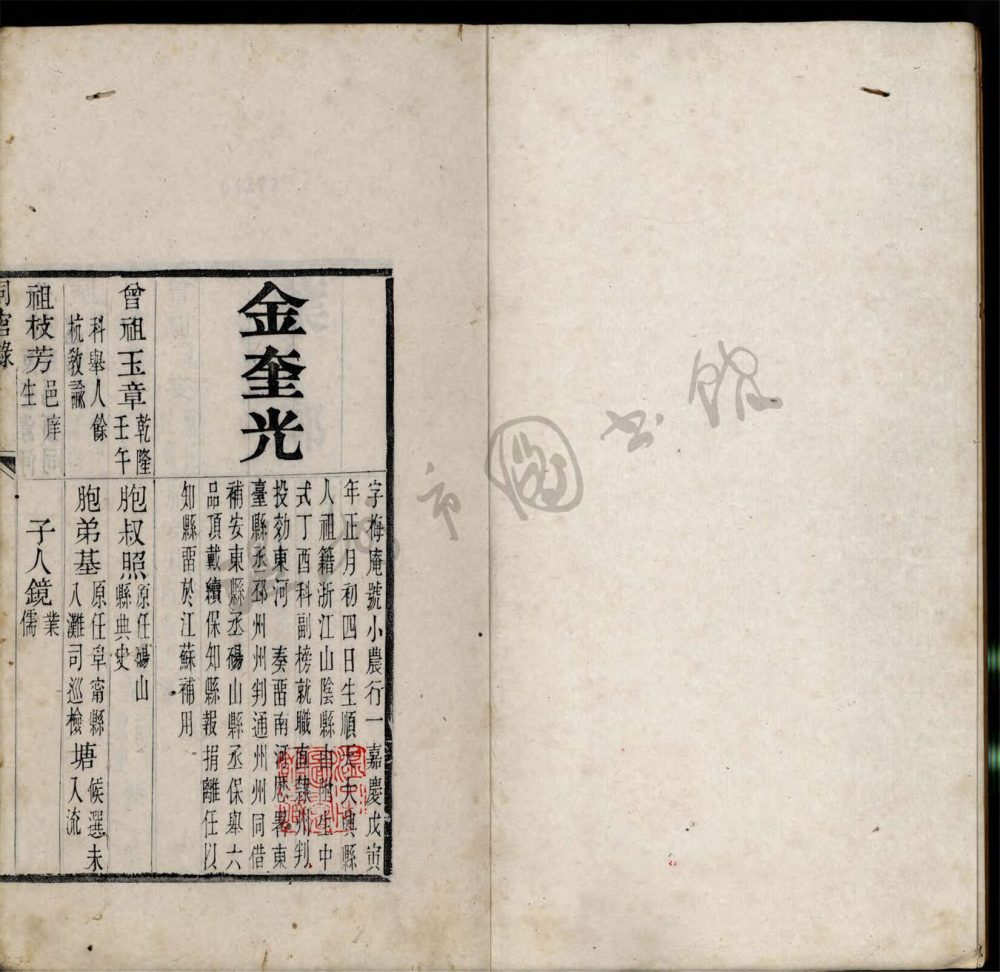 金奎光
字梅庵號小農行一嘉慶戊寅
年正月初四日生順天大興縣
人祖籍浙江山陰縣由附生中
式丁酉科副榜就職直隸州判
投効東河　奏畱南河歷署東
臺縣丞邳州州判通州州同借
補安東縣丞碭山縣丞保舉六
品頂戴續保知縣報捐離任以
知縣畱於江蘇補用
曾祖玉章乾隆
壬午
科舉人餘
杭敎諭
祖枝芳邑庠
生
胞叔照原任碭山
縣典史
胞弟基原任阜甯縣
入灘司巡檢
塘候選未
入流
子人鏡業
儒
同官錄
市圖書館